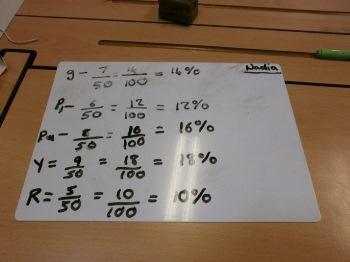 Nadia
g - 7/50 = 16/100 = 16%
Pi - 6/50 = 12/100 = 12%
Pu - 8/50 = 16/100 = 16%
Y = 9/50 = 18/100 = 18%
R = 5/50 = 10/100 = 10%